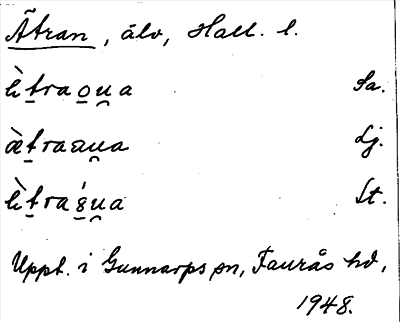 Ätran, älv, Hall. l.
ὲtraou̯a Sa.
ætraau̯a Lj.
ὲtraǵu̯a St.
Uppt. i Gunnarps sn, Faurås hd,
1948.